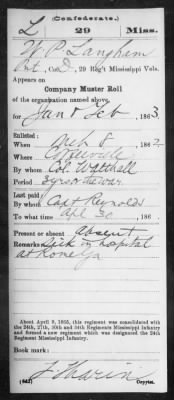 (Confederate.)
L 29 Miss.
W. P. Langham
Pvt, Co. D, 29 Reg't Mississippi Vols.
Appears on
Company Muster Roll
of the organization named above,
for Jan & Feb, 1863.
Enlisted:
When Mch 8, 1862.
Where Coffeeville
By whom Col. Walthall
Period 3 yrs or the war
Last paid:
By whom Capt Reynolds
To what time , 186 .
Present or absent absent
Remarks: Sick in hospital
at Rome Ga
About April 9, 1865, this regiment was consolidated with
the 24th, 27th, 30th and 34th Regiments Mississippi Infantry
and formed a new regiment which was designated the 24th
Regiment Mississippi Infantry.
Book mark:
(642) Copyist.